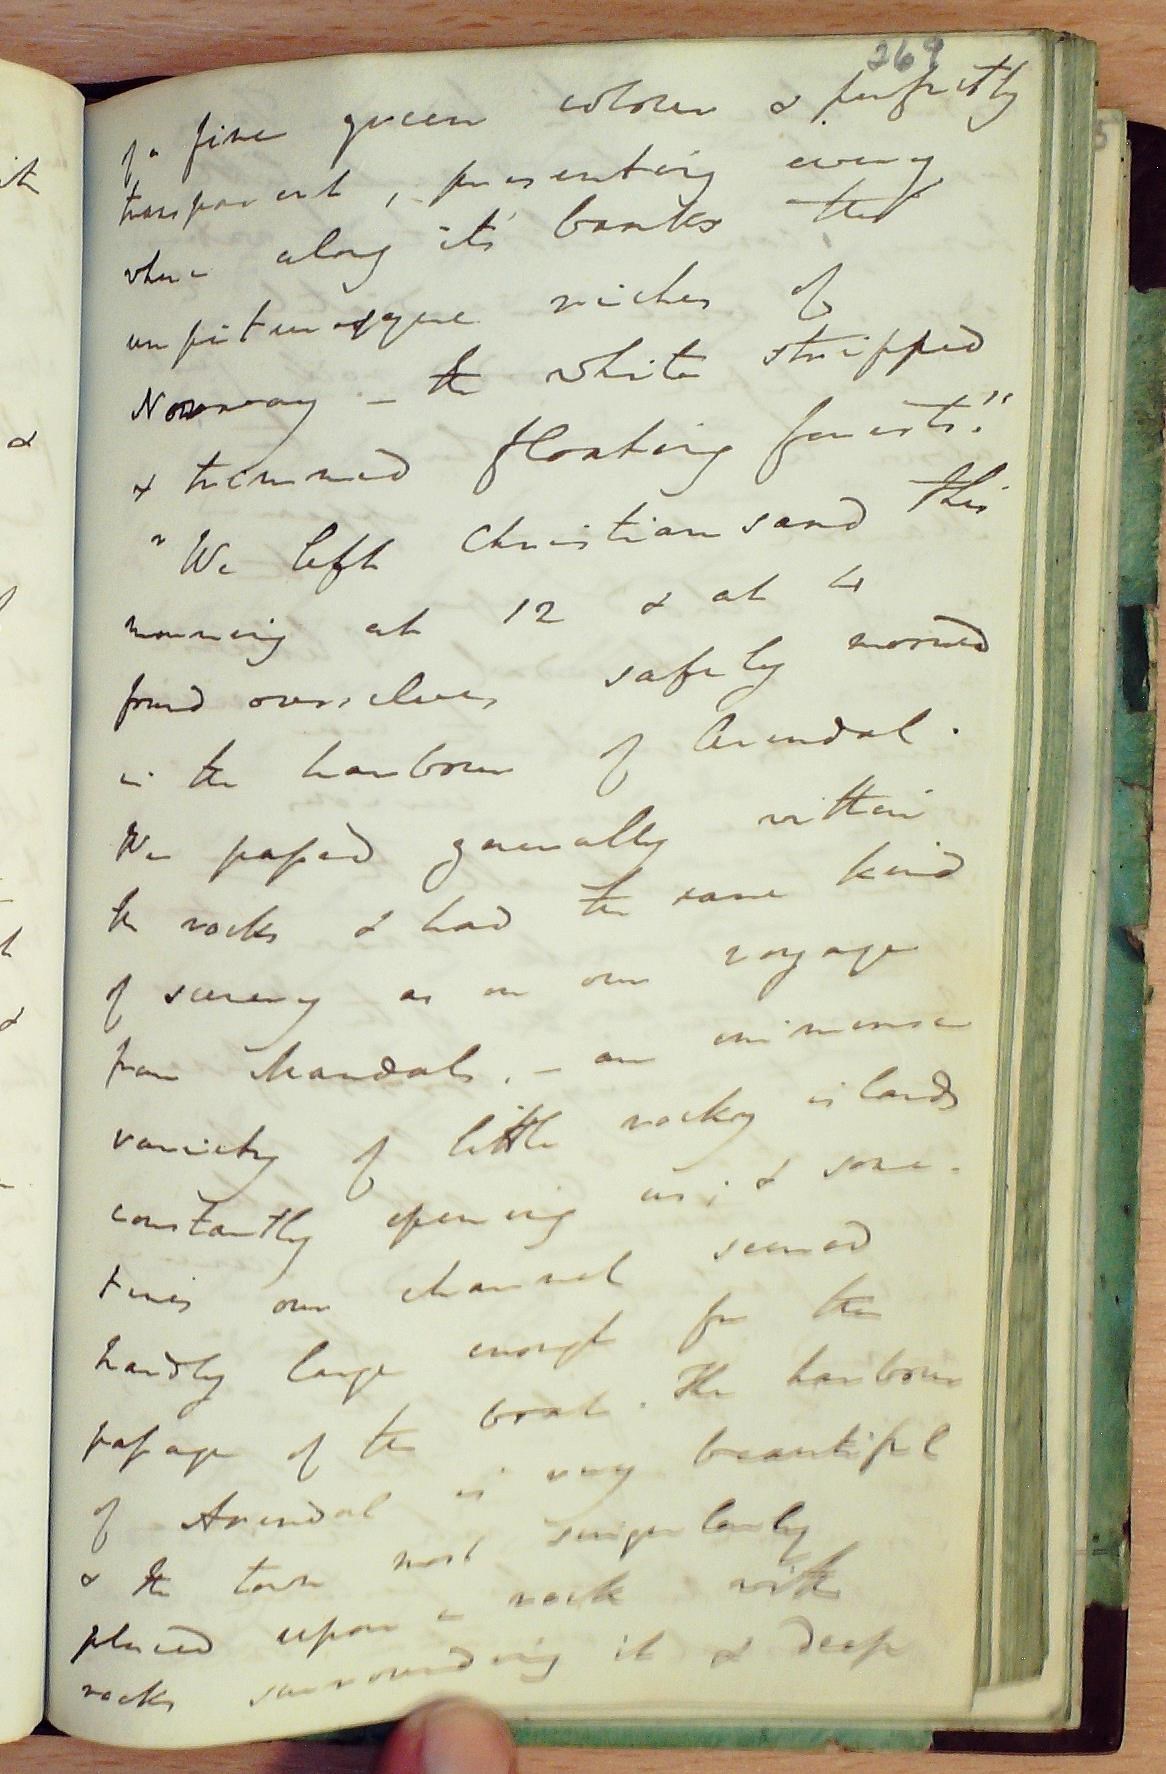 269
of a fine green colour & perfectly
transparent, presenting every
where along its banks the
unpicturesque riches of
Norway – the white stripped
& trimmed floating forests."
"We left Christiansand this
morning at 12 & at 4
found ourselves safely moored
in the harbour of Arendal.
We passed generally within
the rocks & had the same kind
of scenery as on our voyage
from Mandahl. – an immense
variety of little rocky islands
constantly opening us; & some-
times our channel seemed
hardly large enough for the
passage of the boat. The harbour
of Arendal is very beautiful
& the town most singularly
placed upon a rock with
rocks surrounding it & deep